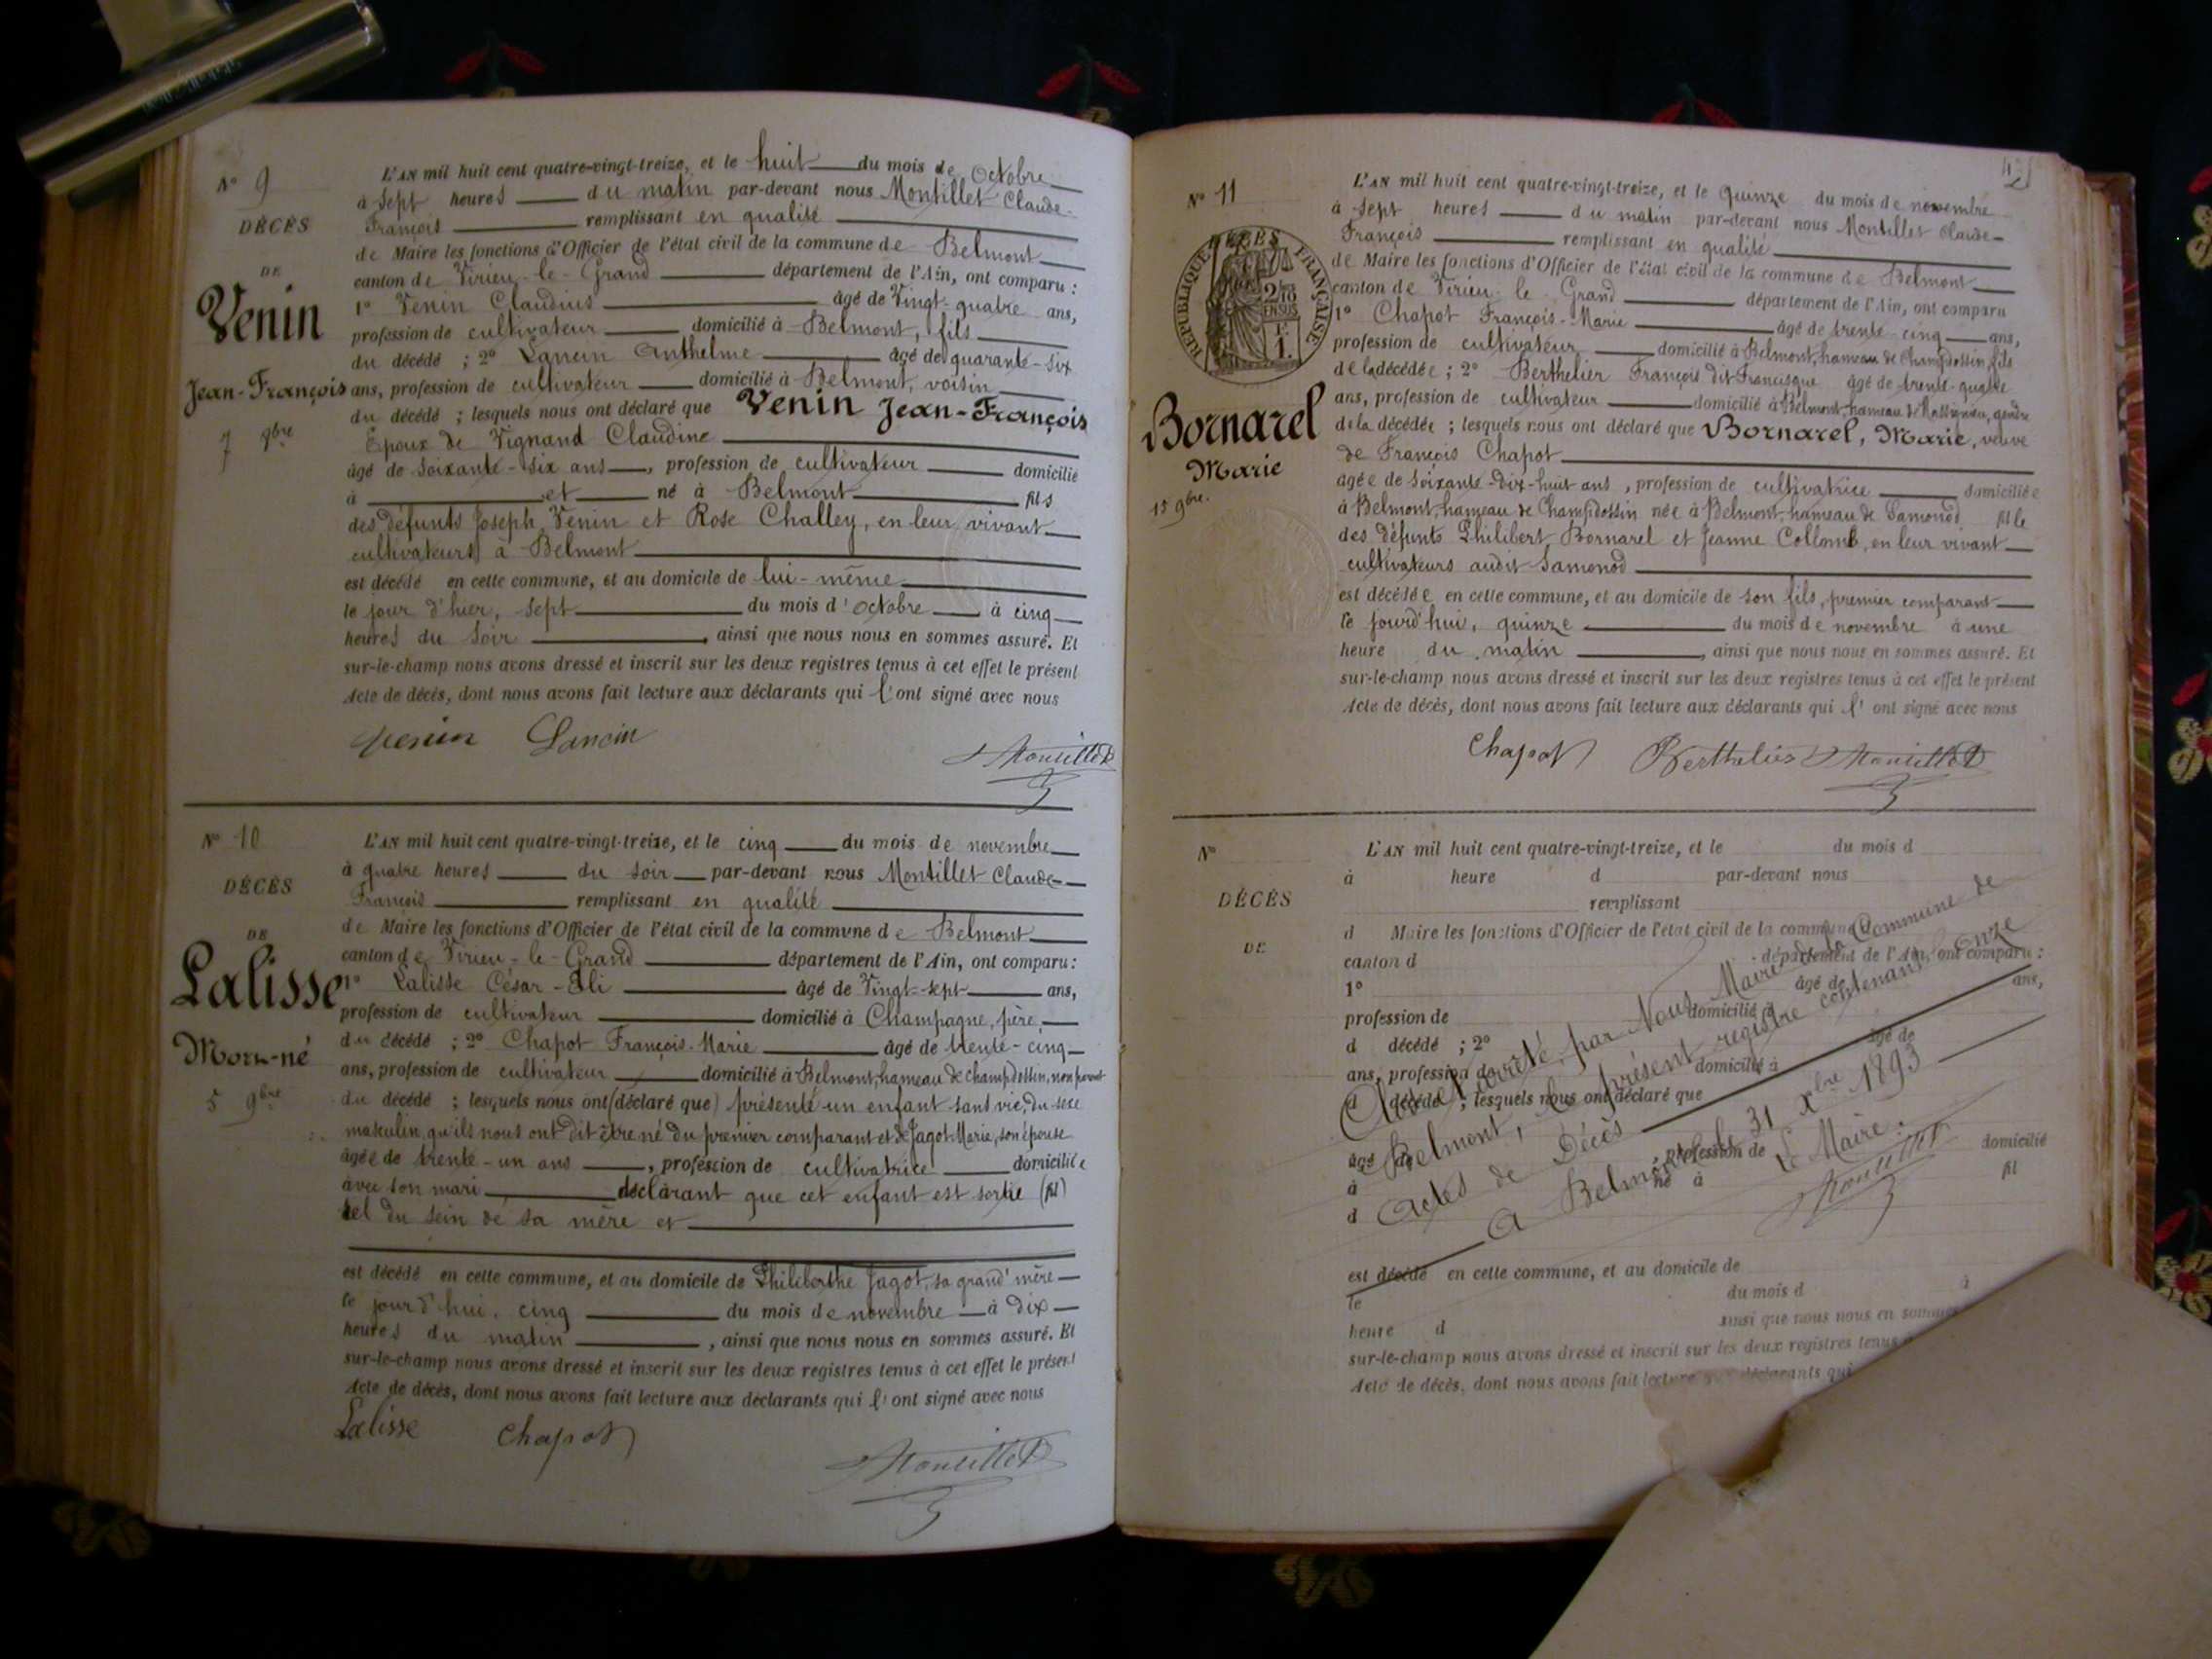 N° 9
DÉCÈS
DE
Venin
Jean-François
7 8bre
L'AN mil huit cent quatre-vingt-treize, et le huit du mois de Octobre
à sept heures du matin par-devant nous Montillet Claude-
François remplissant en qualité
de Maire les fonctions d'Officier de l'état civil de la commune de Belmont
canton de Virieu-le-Grand département de l'Ain, ont comparu :
1° Venin Claudius âgé de Vingt-quatre ans,
profession de cultivateur domicilié à Belmont, fils
du décédé ; 2° Lancin Anthelme âgé de quarante-six
ans, profession de cultivateur domicilié à Belmont, voisin
du décédé ; lesquels nous ont déclaré que Venin Jean-François
Époux de Vignand Claudine
âgé de soixante-six ans, profession de cultivateur domicilié
à et né à Belmont fils
des défunts Joseph Venin et Rose Challey, en leur vivant
cultivateurs à Belmont
est décédé en cette commune, et au domicile de lui-même
le jour d'hier, sept du mois d'octobre à cinq
heures du soir, ainsi que nous nous en sommes assuré. Et
sur-le-champ nous avons dressé et inscrit sur les deux registres tenus à cet effet le présent
Acte de décès, dont nous avons fait lecture aux déclarants qui l'ont signé avec nous
Venin Lancin Montillet
N° 10
DÉCÈS
DE
Lalisse
Mort-né
5 9bre
L'AN mil huit cent quatre-vingt-treize, et le cinq du mois de novembre
à quatre heures du soir par-devant nous Montillet Claude-
François remplissant en qualité
de Maire les fonctions d'Officier de l'état civil de la commune de Belmont
canton de Virieu-le-Grand département de l'Ain, ont comparu :
1° Lalisse César-Ali âgé de Vingt-sept ans,
profession de cultivateur domicilié à Champagne, père
du décédé ; 2° Chapot François-Marie âgé de trente-cinq
ans, profession de cultivateur domicilié à Belmont, hameau de Champdossin, non parent
du décédé ; lesquels nous ont (déclaré que) présenté un enfant sans vie, du sexe
masculin, qu'ils nous ont dit être né du premier comparant et de Jagot Marie, son épouse
âgée de trente-un ans, profession de cultivatrice domiciliée
avec son mari déclarant que cet enfant est sortie (fil)
tel du sein de sa mère et
est décédé en cette commune, et au domicile de Philiberthe Jagot, sa grand'mère
le jourd'hui, cinq du mois de novembre à dix
heures du matin, ainsi que nous nous en sommes assuré. Et
sur-le-champ nous avons dressé et inscrit sur les deux registres tenus à cet effet le présent
Acte de décès, dont nous avons fait lecture aux déclarants qui l'ont signé avec nous
Lalisse Chapot Montillet
N° 11
DÉCÈS
RÉPUBLIQUE FRANÇAISE
2/10
EN SUS
1F
Bornarel
Marie
15 9bre.
L'AN mil huit cent quatre-vingt-treize, et le quinze du mois de novembre
à sept heures du matin par-devant nous Montillet Claude-
François remplissant en qualité
de Maire les fonctions d'Officier de l'état civil de la commune de Belmont
canton de Virieu-le-Grand département de l'Ain, ont comparu
1° Chapot François-Marie âgé de trente-cinq ans,
profession de cultivateur domicilié à Belmont, hameau de Champdossin, fils
de la décédée ; 2° Berthelier François dit Francisque âgé de trente-quatre
ans, profession de cultivateur domicilié à Belmont, hameau de gendre
de la décédée ; lesquels nous ont déclaré que Bornarel, Marie, veuve
de François Chapot
âgée de soixante-dix-huit ans, profession de cultivatrice domiciliée
à Belmont, hameau de Champdossin née à Belmont, hameau de Samonod fille
des défunts Philibert Bornarel et Jeanne Collomb, en leur vivant
cultivateurs audit Samonod
est décédée en cette commune, et au domicile de son fils, premier comparant
le jourd'hui, quinze du mois de novembre à une
heure du matin, ainsi que nous nous en sommes assuré. Et
sur-le-champ nous avons dressé et inscrit sur les deux registres tenus à cet effet le présent
Acte de décès, dont nous avons fait lecture aux déclarants qui l'ont signé avec nous
Chapot Berthelier Montillet
N°
DÉCÈS
DE
L'AN mil huit cent quatre-vingt-treize, et le du mois d
à heure d par-devant nous
remplissant
d Maire les fonctions d'Officier de l'état civil de la commune d
canton d département de l'Ain, ont comparu :
1° âgé de ans,
profession de domicilié à
d décédé ; 2° âgé de
ans, profession de domicilié à
d décédé ; lesquels nous ont déclaré que
âgé de profession de domicilié
à né à fil
d
Clos et arrêté, par Nous Maire de la Commune de
Belmont, le présent registre contenant onze
Actes de Décès
A Belmont le 31 Xbre 1893
Le Maire.
Montillet
est décédé en cette commune, et au domicile de
le du mois d à
heure d ainsi que nous nous en sommes
sur-le-champ nous avons dressé et inscrit sur les deux registres tenus
Acte de décès, dont nous avons fait lecture aux déclarants qui